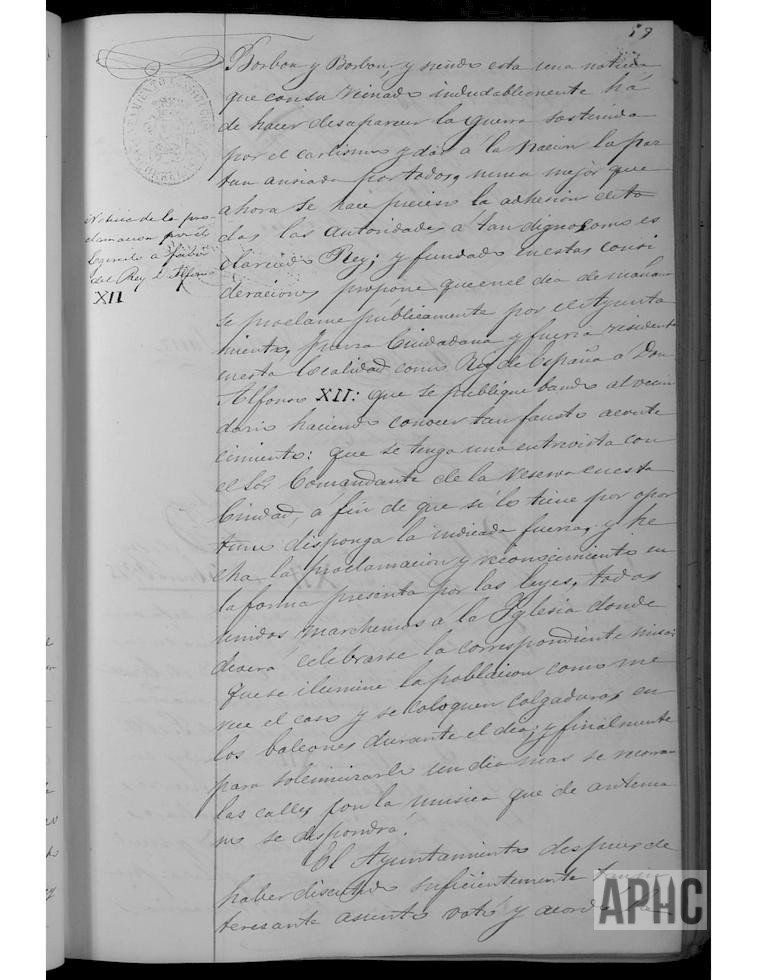 59
Borbon y Borbon, y siendo esta una noticia
que con su reinado indudablemente há
de hacer desaparecer la guerra sostenida
por el carlismo y dar a la Nacion la paz
tan ansiada por todos, nunca mejor que
ahora se hace preciso la adhesion de to
das las autoridades á tan digno como es
clarecido Rey; y fundado en estas consi
deraciones propone que en el dia de mañana
se proclame públicamente por el Ayunta
miento, fuerza Ciudadana y fuerza residente
en esta localidad como Rey de España a Don
Alfonso XII: que se publique bando al vecin
dario haciendo conocer tan fausto aconte
cimiento: que se tenga una entrevista con
el Sor Comandante de la reserva en esta
Ciudad, a fin de que si lo tiene por opor
tuno disponga la indicada fuerza, y he
cha la proclamacion y reconocimiento en
la forma prescrita por las leyes, todos
unidos marchemos a la Iglesia donde
deverá celebrarse la correspondiente misa:
que se ilumine la poblacion como me
rece el caso y se coloquen colgaduras en
los balcones durante el dia; y finalmente
para solemnizarlo un dia mas se recorran
las calles con la musica que de antema
no se dispondrá.
El Ayuntamiento despues de
haber discutido suficientemente
teresante asunto votó y acordó
Noticia de la pro-
clamacion por el
Egercito a fabor
del Rey D. Alfonso
XII
AYUNTAMIENTO
TORRELAVEGA
APHC